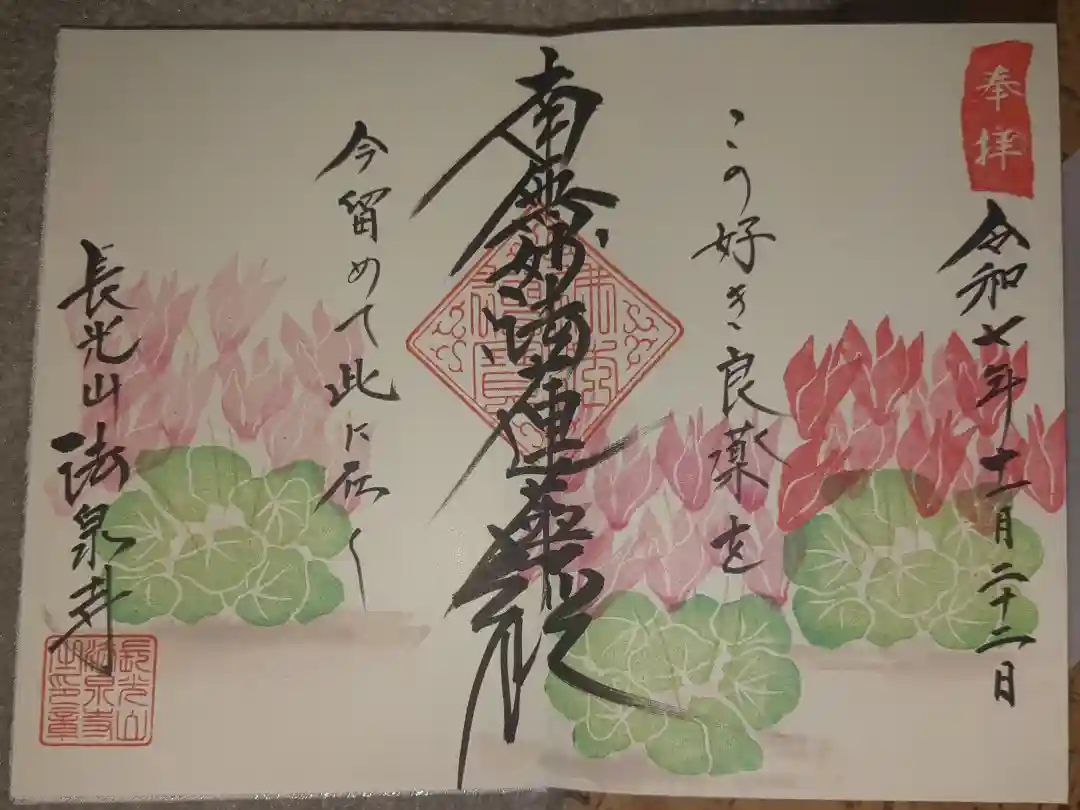 奉拝
令和七年十一月二十二日
この好き良薬を
南無妙法蓮華経
今留めて此に在く
長光山 法泉寺
長光山
法泉寺
之印章